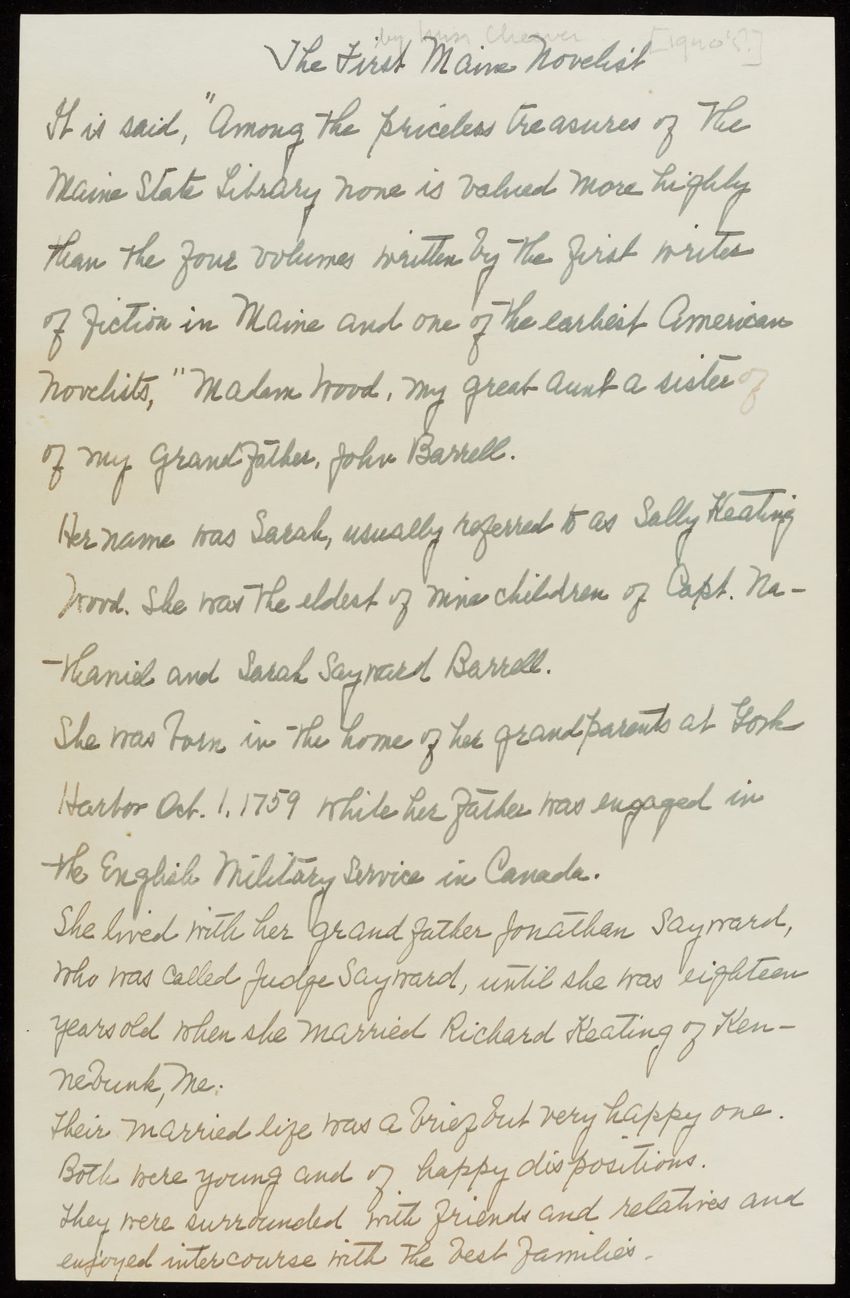 by Miss Cheever
The First Maine Novelist
It is said, "Among the priceless treasures of the
Maine State Library none is valued more highly
than the four volumes written by the first writer
of fiction in Maine and one of the earliest American
novelists," Madam Wood, my great aunt a sister of
of my Grandfather, John Barrell.
Her name was Sarah, usually referred to as Sally Keating
Wood. She was the eldest of nine children of Capt. Na-
-thaniel and Sarah Sayward Barrell.
She was born in the home of her grandparents at York
Harbor Oct. 1, 1759 while her father was engaged in
the English Military Service in Canada.
She lived with her grandfather Jonathan Sayward,
who was called Judge Sayward, until she was eighteen
years old when she married Richard Keating of Ken-
nebunk, Me.
Their married life was a brief but very happy one.
Both were young and of happy dispositions.
They were surrounded with friends and relatives and
enjoyed intercourse with the best families.